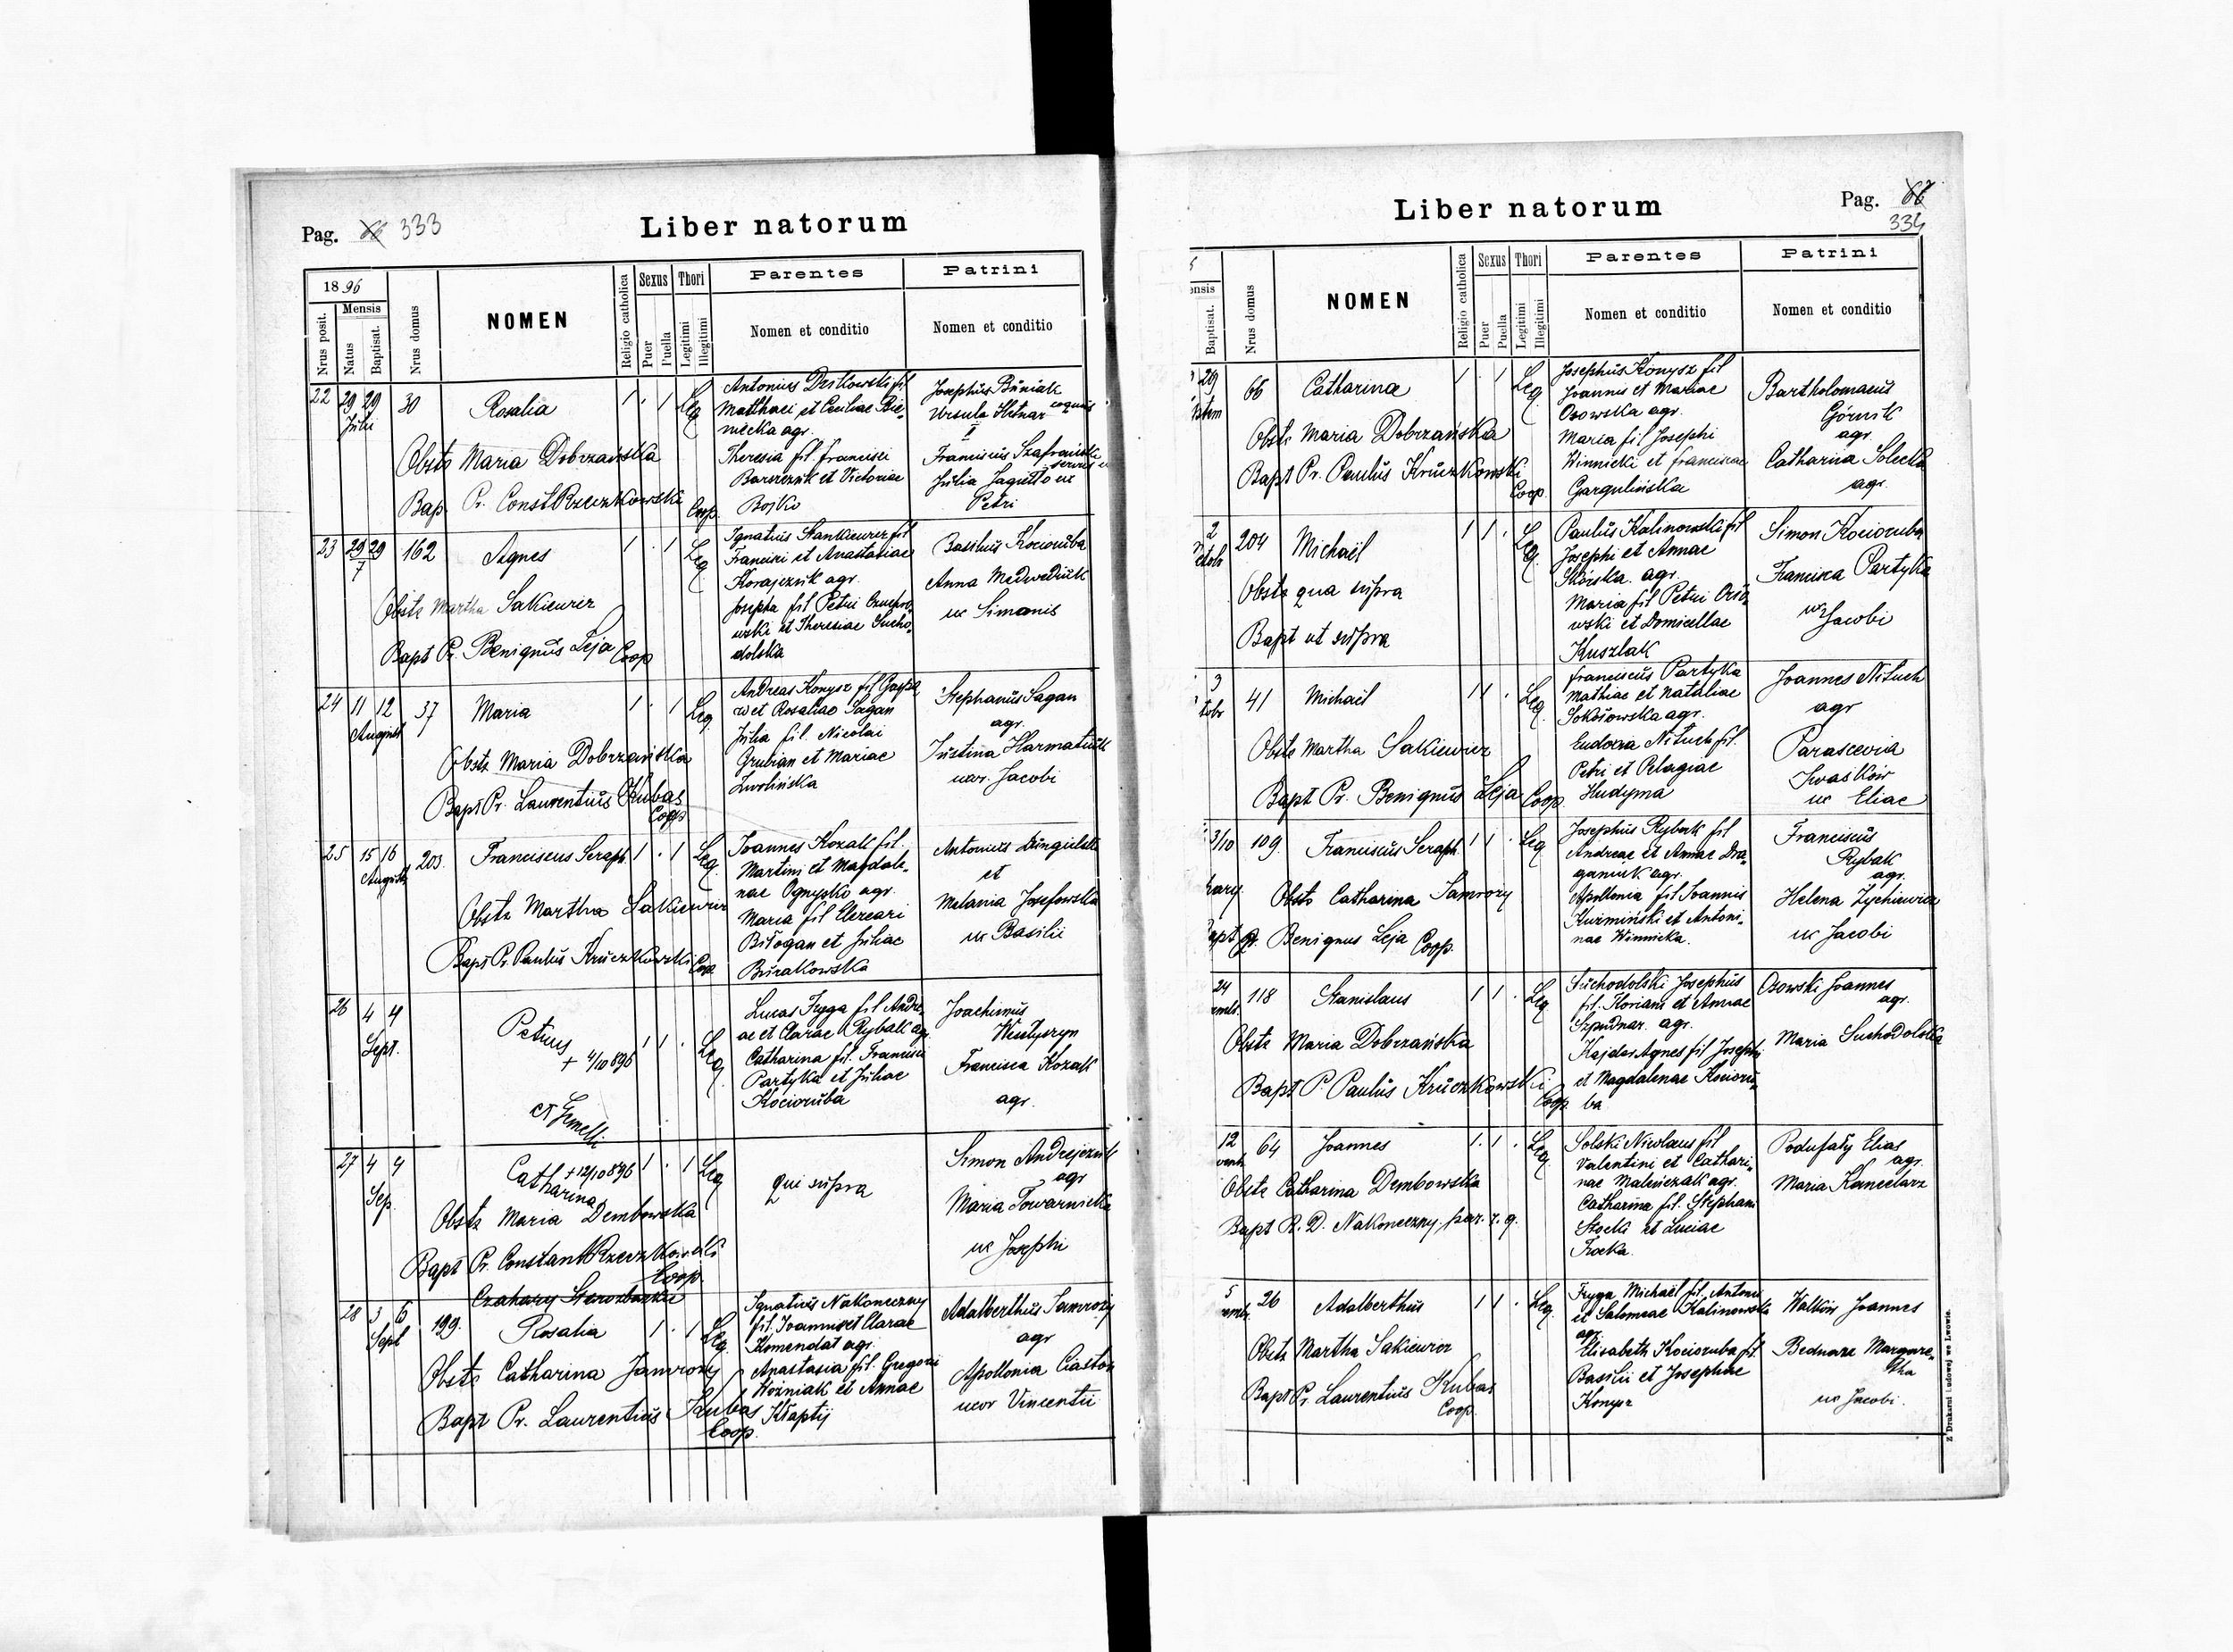 Pag. 66 333
Liber natorum
1896
Mensis
Nrus posit.
Natus
Baptisat.
Nrus domus
NOMEN
Religio catholica
Sexus
Puer
Puella
Thori
Legitimi
Illegitimi
Parentes
Nomen et conditio
Patrini
Nomen et conditio
22 29 29 Julii 30 Rosalia 1 . 1 Leg
Obstx Maria Dobrzańska
Bap. Pr. Const Rzeczkowski Coop.
Antonius Dzikowski fil
Matthaei et Ceciliae Bie-
niecka agr.
Theresia fil. Francisci
Barszcznik et Victoriae
Bojko
Josephus Buniak
Ursula
Franciscus Szafrański
Julia Jagutto ux
Petri
23 29 29 7 162 Agnes 1 . 1 Leg
Obstx Martha Sakiewicz
Bapt Pr. Benignus Leja Coop
Ignatius Stankiewicz fil
Francisci et Anastasiae
Korajcznik agr.
Josepha fil Petri
et Theresiae Sucho-
dolska
Basilius Kocioruba
Anna Medwediuk
ux Simonis
24 11 12 August 37 Maria 1 . 1 Leg
Obstx Maria Dobrzańska
Bapt Pr. Laurentius Kubas
Coop
Andreas Konysz fil
et Rosaliae Sagan
Julia fil. Nicolai
Grubian et Mariae
Zwolińska
Stephanus Sagan
agr.
Justina Harmatiuk
uxor. Jacobi
25 15 16 August 203. Franciscus Seraph. 1 . 1 Leg
Obstx Martha Sakiewicz
Bapt Pr. Paulus Kruczkowski Coop
Joannes Kozak fil.
Martini et Magdale-
nae Ognysko agr.
Maria fil
Biłogan et Juliae
Burakowska
Antonius
et
Melania Josefowska
ux Basilii
26 4 4 Sept. Petrus 1 1 . Leg
+ 4/10 896
et Gemelli
Lucas Fryga fil Andre-
ae et Clarae Rybak agr
Catharina fil. Francisci
Partyka et Juliae
Kocioruba
Joachimus
Francisca Kozak
agr.
27 4 4 Sep. Catharina + 12/10 896 1 . 1 Leg
Obstx Maria Dembowska
Bapt Pr. Constant Rzeczkowski
Coop
qui supra
Simon Andrejczuk
agr
Maria Towarnicka
ux Josephi
28 3 6 Sept 199. Rosalia 1 . 1 Leg
Obstx Catharina Jamrozy
Bapt Pr. Laurentius Kubas
Coop.
Ignatius Nakoneczny
fil. Joannis et Clarae
Komendat agr.
Anastasia fil. Gregorii
Woźniak et Annae
Kłaptij
Adalberthus Jamrozy
agr
Apollonia Ciastoń
uxor Vincentii
Liber natorum
Pag. 67
334
Baptisat.
Nrus domus
NOMEN
Religio catholica
Sexus
Puer
Puella
Thori
Legitimi
Illegitimi
Parentes
Nomen et conditio
Patrini
Nomen et conditio
20 66 Catharina 1 . 1 Leg
Obstx Maria Dobrzańska
Bapt Pr. Paulus Kruczkowski
Coop
Josephus Konysz fil
Joannis et Mariae
Osowska agr.
Maria fil Josephi
Winnicki et Franciscae
Gargulińska
Bartholomaeus
Górnik
agr.
Catharina Solecka
agr.
2 204 Michaël 1 1 . Leg.
Obstx qua supra
Bapt ut supra
Paulus Kalinowski fil
Josephi et Annae
Skórska. agr.
Maria fil Petri Oso-
wski et Domicellae
Kuszlak
Simon Kocioruba
Francisca Partyka
ux Jacobi
3 41 Michaël 1 1 . Leg.
Obstx Martha Sakiewicz
Bapt Pr. Benignus Leja Coop.
Franciscus Partyka
Mathiae et Nataliae
Sokołowska agr.
Eudoxia Nituch fil.
Petri et Pelagiae
Hudyma
Joannes Nituch
agr
Parascevia
Iwaśków
ux Eliae
3/10 109. Franciscus Seraph. 1 1 . Leg
Obstx Catharina Jamrozy
Bapt Pr. Benignus Leja Coop.
Josephus Rybak fil
Andreae et Annae Dra-
ganiuk agr.
Apollonia fil Joannis
Kuźmiński et Antoni-
nae Winnicka.
Franciscus
Rybak
agr.
Helena Zychiewicz
ux Jacobi
24 118 Stanislaus 1 1 . Leg
Obstx Maria Dobrzańska
Bapt P. Paulus Kruczkowski
Coop
Suchodolski Josephus
fil. Floriani et Annae
Szpudnar. agr.
Kajder Agnes fil Josephi
et Magdalenae Kocioru-
ba
Osowski Joannes
agr.
Maria Suchodolska
12 64 Joannes 1. 1 . Leg
Obstx Catharina Dembowska
Bapt R. D. Nakoneczny, par. r. g.
Solski Nicolaus fil
Valentini et Cathari-
nae Maleńczak agr.
Catharina fil. Stephani
Stocki et Luciae
Trocka.
Podufały Elias
agr.
Maria Kancelarz
5 26 Adalberthus 1 1 . Leg.
Obstx Martha Sakiewicz
Bapt Pr. Laurentius Kubas
Coop.
Fryga Michaël fil. Antonii
et Salomeae Kalinowska
agr.
Elisabeth Kocioruba fil
Basilii et Josephae
Konysz
Walków Joannes
Bednarz Margare-
tha
ux Jacobi.
Z Drukarni Ludowej we Lwowie.